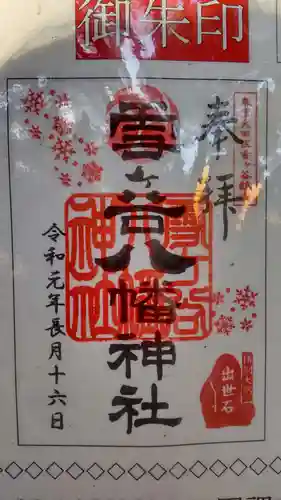 御朱印
奉拝
雪ヶ谷八幡神社
令和元年長月十六日
出世石